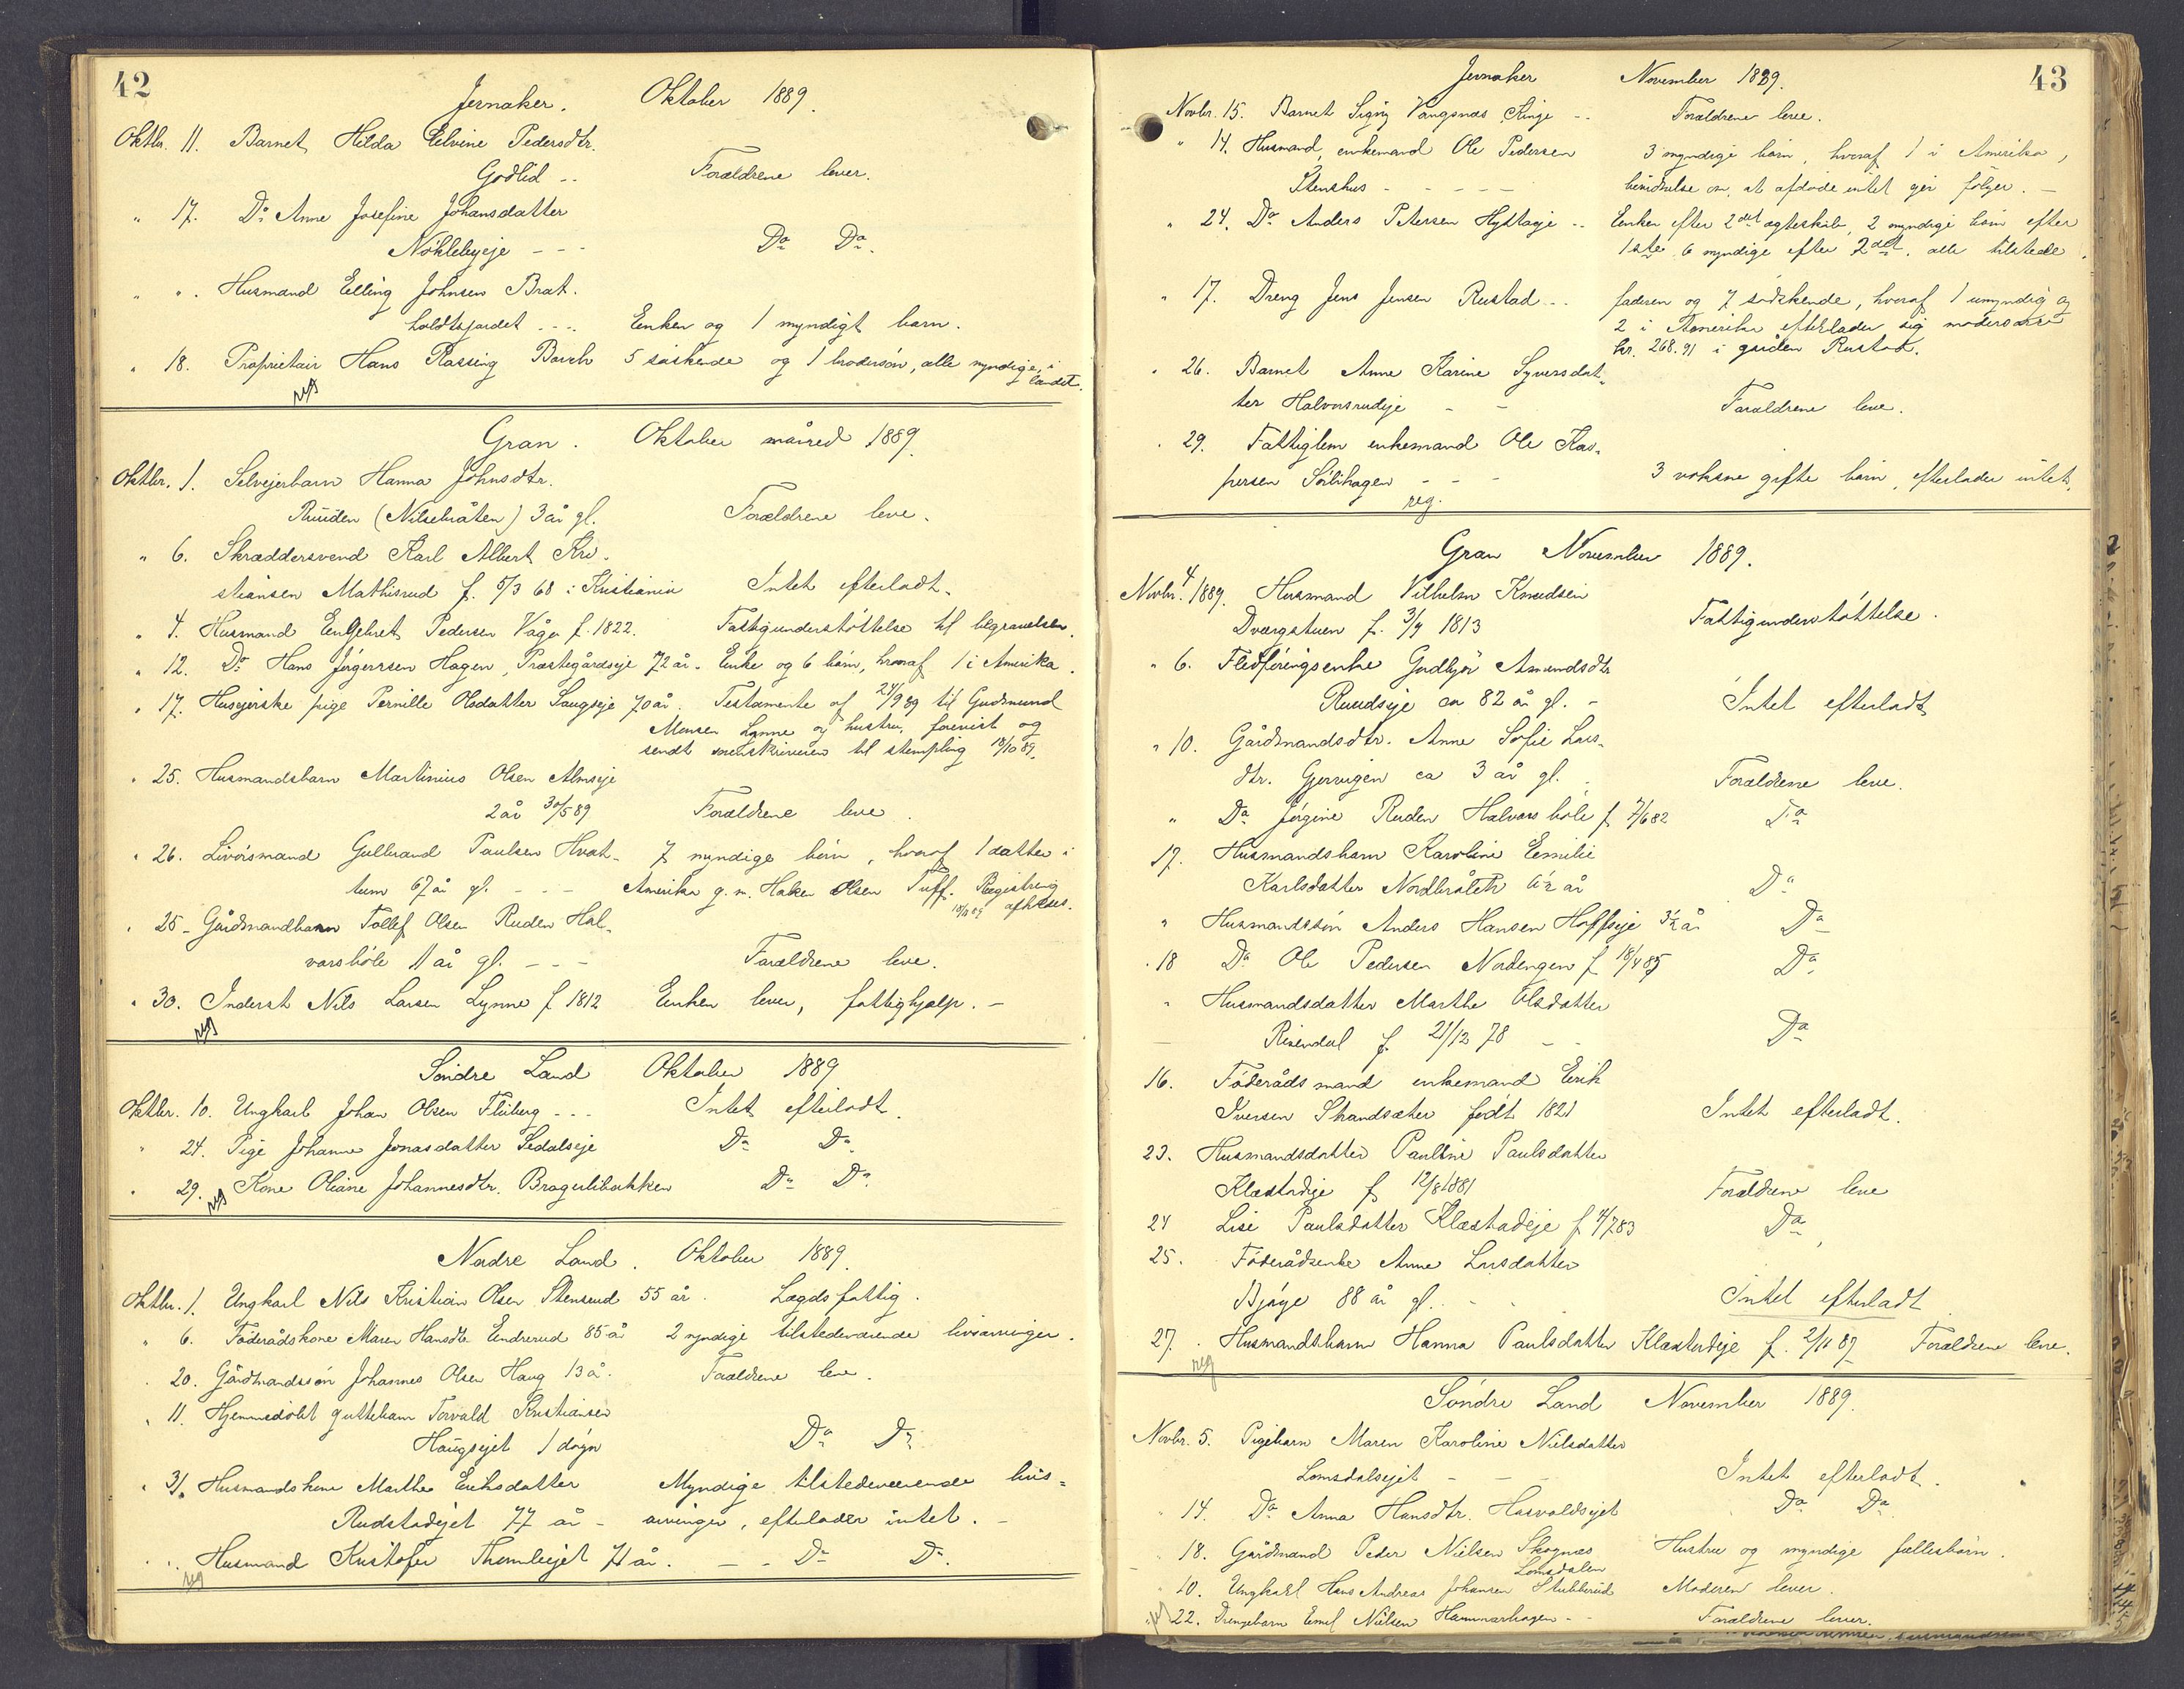 42
Jernaker. Oktober 1889.
Oktbr. 11. Barnet Hilda Elvine Pedersdtr.
Godlid -- Forældrene lever.
" 17. Do Anne Josefine Johansdatter
Nøklebyeje --- Do Do.
" ". Husmand Elling Johnsen Brat.
holdtajordet --- Enken og 1 myndigt barn.
" 18. Proprietair Hans Rassing Borch 5 søskende og 1 brodersøn, alle myndige, i
landet.
reg
Gran. Oktober måned 1889.
Oktbr. 1. Selveierbarn Hanna Johnsdtr.
Ruden (Nilsebråten) 3 år gl. Forældrene leve.
" 6. Skræddersvend Karl Albert Kri-
stiansen Mathisrud f. 5/3 68 i Kristiania Intet efterladt.
" 4. Husmand Engebret Pedersen Våga f. 1822. Fattigunderstøttelse til begravelsen.
" 12. Do Hans Jørgensen Hagen, Præstegårdseje 72 år. Enke og 6 børn, hvoraf 1 i Amerika.
" 17. Husejerske pige Pernille Olsdatter Saugseje 70 år. Testamente af 24/9 89 til Gudmund
Monsen Lynne og hustru, forevist og
sendt sorenskriveren til stempling 18/10 89.
" 25. Husmandsbarn Martinius Olsen Almseje
2 år 30/5 89 Forældrene leve.
" 26. Livørsmand Gulbrand Paulsen Hvat-
tum 67 år gl. --- 7 myndige børn, hvoraf 1 datter i
Amerika g. m. Haken Olsen Tuff. Registrering
afholdes.
" 25. Gårdmandbarn Tollef Olsen Ruden Hal-
vorsbøle 11 år gl. --- Forældrene leve.
" 30. Inderst Nils Larsen Lynne f. 1812 Enken lever, fattighjælp. -
reg
Søndre Land Oktober 1889
Oktbr. 10. Ungkarl Johan Olsen Fluberg --- Intet efterladt.
" 24. Pige Johanne Jonasdatter Sedalseje Do Do.
" 29. Kone Oliane Johannesdtr. Bragerlibakken Do Do.
reg
Nordre Land. Oktober 1889.
Oktbr. 1. Ungkarl Nils Kristian Olsen Stensrud 55 år. Lægdsfattig.
" 6. Føderådskone Maren Hansdtr Endrerud 85 år 2 myndige tilstedeværende livsarvinger.
20. Gårdmandssøn Johannes Olsen Haug 13 å. Forældrene leve.
" 11. Hjemmedøbt guttebarn Torvald Kristiansen
Haugsejet 1 døgn Do Do.
" 31. Husmandskone Marthe Eriksdatter Myndige tilstedeværende livs-
Rudstadejet 77 år - arvinger, efterlader intet. -
" ". Husmand Kristofer Thomlejet 71 år. -- Do Do.
reg
43
Jernaker November 1889.
Novbr. 15. Barnet Signy Vangsnæs Ringe -- Forældrene leve.
" 14. Husmand, enkemand Ole Pedersen 3 myndige børn, hvoraf 1 i Amerika,
Stenshus ---- bevidnelse om, at afdøde intet ejer følger. -
" 24. Do Anders Petersen Hyttaeje -- Enken efter 2det ægteskab, 2 myndige børn efter
1ste 6 myndige efter 2det, alle tilstede.
" 17. Dreng Jens Jensen Rustad -- faderen og 7 sødskende, hvoraf 1 umyndig og
2 i Amerika efterlader sig modersarv
kr. 268.91 i gården Rustad.
" 26. Barnet Anne Karine Syversdat-
ter Halvorsrudeje -- Forældrene leve.
" 29. Fattiglem enkemand Ole Kas-
persen Sølihagen --- 3 voksne gifte børn, efterlader intet.
reg.
Gran November 1889.
Novbr. 4 1889. Husmand Vilhelm Knudsen
Dværgstuen f. 3/4 1813 Fattigunderstøttelse.
" 6. Fledføringsenke Gudbjør Amundsdtr
Ruudseje ca 82 år gl. - Intet efterladt
" 10. Gårdmandsdtr. Anne Sofie Lars-
dtr. Gjervigen ca 3 år gl. Forældrene leve.
" Do Jørgine Ruden Halvorsbøle f 7/6 82 Do
17. Husmandsbarn Karoline Emilie
Karlsdatter Nordbråten 6 1/2 år Do
" Husmandssøn Anders Hansen Hoffseje 3 1/2 år Do
" 18 Do Ole Pedersen Nordengen f 18/4 85 Do.
" Husmandsdatter Marthe Olsdatter
Risendal f. 21/12 78 -- Do
16. Føderådsmand enkemand Erik
Iversen Skandsæter født 1821 Intet efterladt.
23. Husmandsdatter Pauline Paulsdatter
Klæstadeje f 12/8 1881 Forældrene leve
24 Lise Paulsdatter Klæstadeje f 4/7 83 Do
25. Føderådsenke Anne Larsdatter
Bjøge 88 år gl. -- Intet efterladt.
27. Husmandsbarn Hanna Paulsdatter Klæstadeje f. 2/11 87 Forældrene leve.
reg
Søndre Land November 1889.
Novbr. 5. Pigebarn Maren Karoline Nielsdatter
Lomsdalsejet --- Intet efterladt.
" 14. Do Anna Hansdtr. Hasvoldsejet Do Do
" 18. Gårdmand Peder Nielsen Skognæs Hustru og myndige fællesbørn.
Lomsdalen
" 10. Ungkarl Hans Andreas Johansen Stubberud Moderen lever.
" 22. Drengebarn Emil Nielsen Hammarhagen -- Forældrene lever.
reg